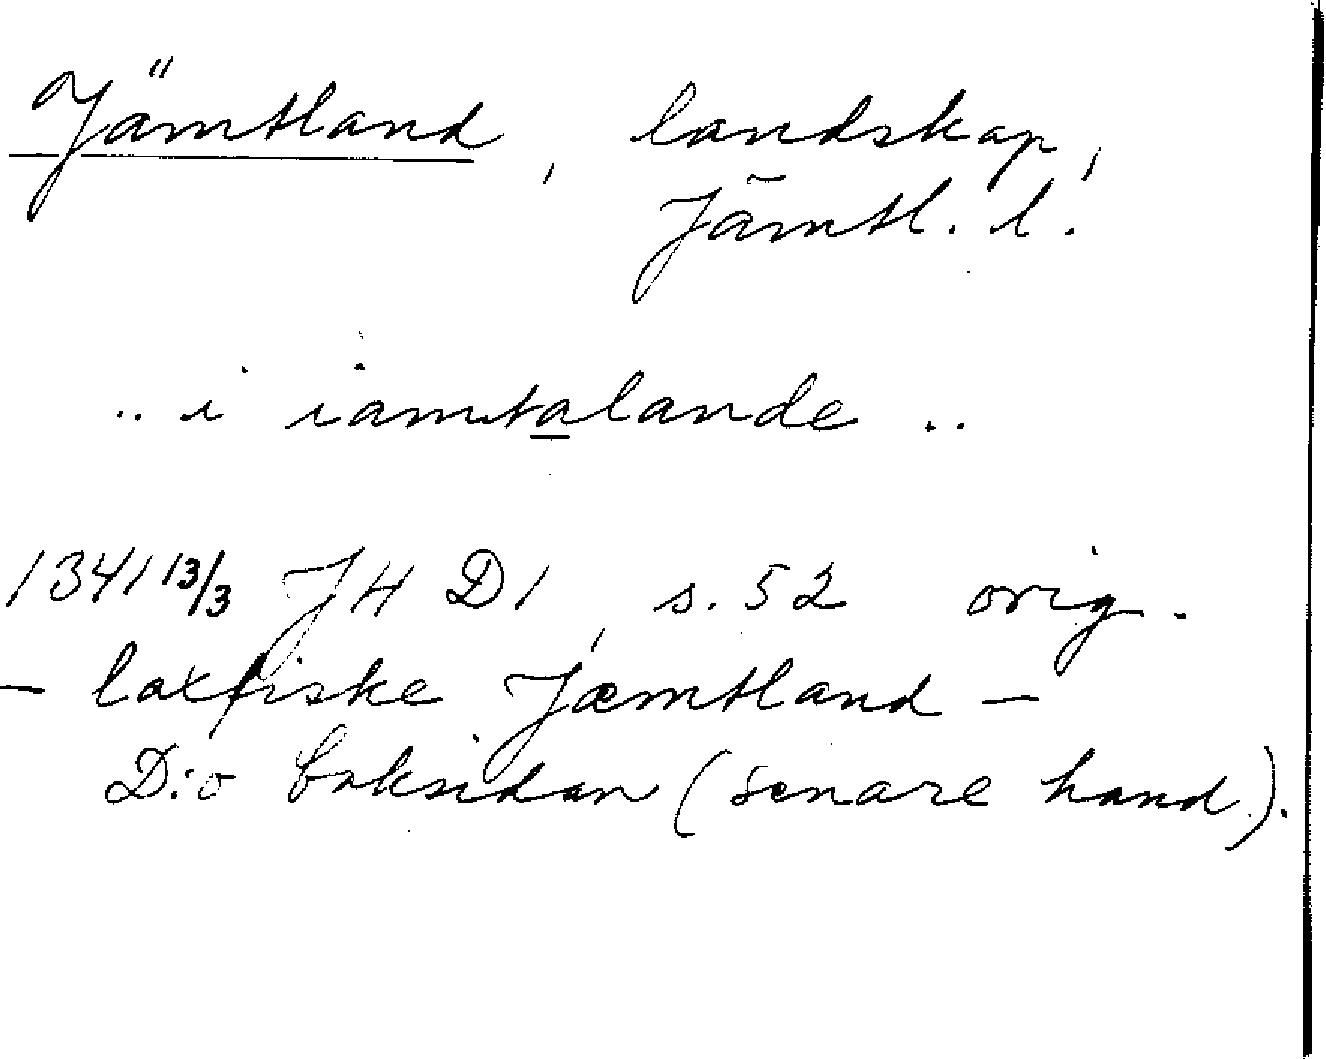 Jämtland, landskap,
Jämtl. l.
.. i iamtalande ..
1341 13/3 JH D1, s. 52 orig.
- laxfiske Jæmtland -
D:o baksidan (senare hand).